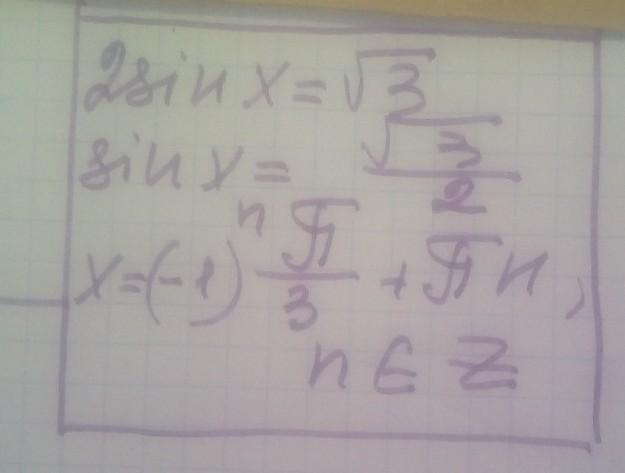 2sin x = √3
sin x = √3/2
x = (-1)ⁿ π/3 + πn,
n ∈ Z